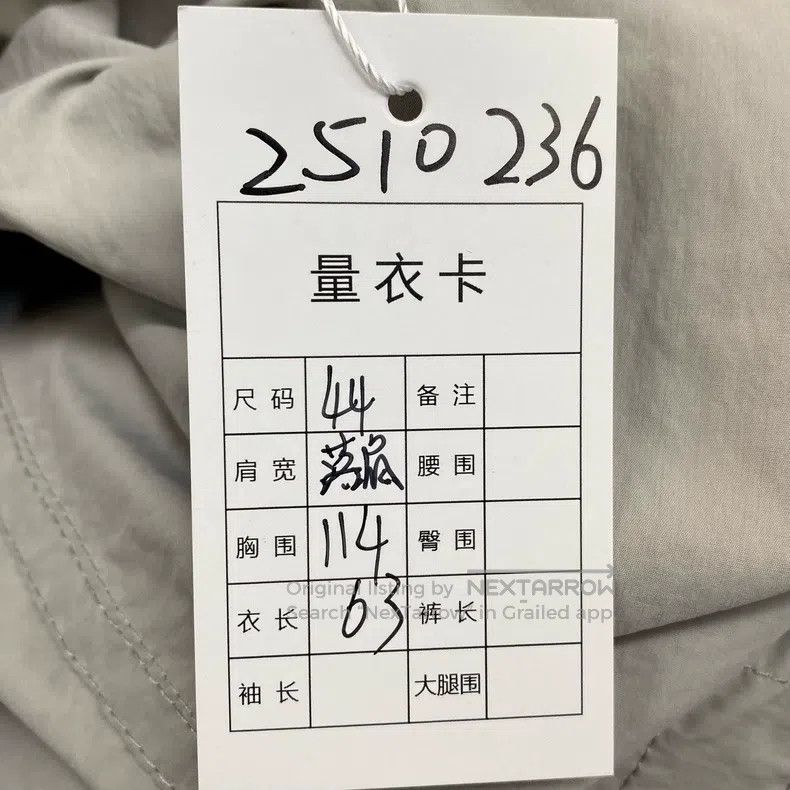 2510 236
量衣卡
尺码 44 备注
肩宽 落肩 腰围
胸围 114 臀围
Original listing by NEXTARROW
Search "NexTarrow" in Grailed app
衣长 63 裤长
袖长 大腿围